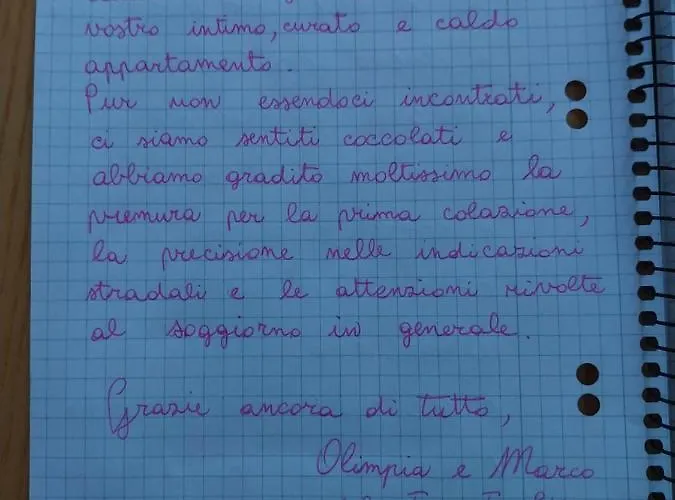 vostro intimo, curato e caldo
appartamento.
Pur non essendoci incontrati,
ci siamo sentiti coccolati e
abbiamo gradito moltissimo la
premura per la prima colazione,
la precisione nelle indicazioni
stradali e le attenzioni rivolte
al soggiorno in generale.
Grazie ancora di tutto,
Olimpia e Marco